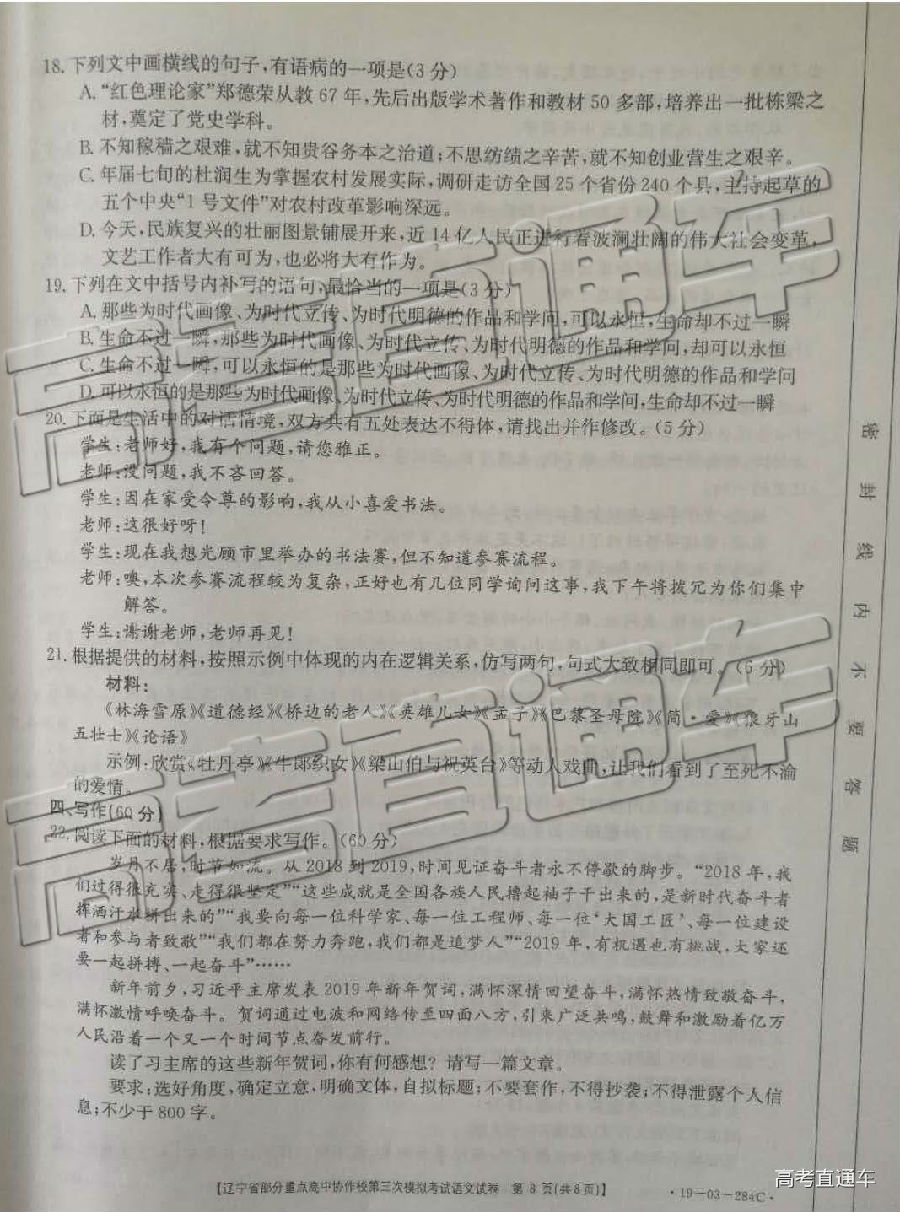 18.下列文中画横线的句子,有语病的一项是(3分)
A.“红色理论家”郑德荣从教67年,先后出版学术著作和教材50多部,培养出一批栋梁之
材,奠定了党史学科。
B.不知稼穑之艰难,就不知贵谷务本之治道;不思纺绩之辛苦,就不知创业营生之艰辛。
C.年届七旬的杜润生为掌握农村发展实际,调研走访全国25个省份240个县,主持起草的
五个中央“1号文件”对农村改革影响深远。
D.今天,民族复兴的壮丽图景铺展开来,近14亿人民正进行着波澜壮阔的伟大社会变革,
文艺工作者大有可为,也必将大有作为。
19.下列在文中括号内补写的语句,最恰当的一项是(3分)
A.那些为时代画像、为时代立传、为时代明德的作品和学问,可以永恒,生命却不过一瞬
B.生命不过一瞬,那些为时代画像、为时代立传、为时代明德的作品和学问,却可以永恒
C.生命不过一瞬,可以永恒的是那些为时代画像、为时代立传、为时代明德的作品和学问
D.可以永恒的是那些为时代画像、为时代立传、为时代明德的作品和学问,生命却不过一瞬
20.下面是生活中的对话情境,双方共有五处表达不得体,请找出并作修改。(5分)
学生:老师好,我有个问题,请您雅正。
老师:没问题,我不吝回答。
学生:因在家受令尊的影响,我从小喜爱书法。
老师:这很好呀!
学生:现在我想光顾市里举办的书法赛,但不知道参赛流程。
老师:噢,本次参赛流程较为复杂,正好也有几位同学询问这事,我下午将拨冗为你们集中
解答。
学生:谢谢老师,老师再见!
21.根据提供的材料,按照示例中体现的内在逻辑关系,仿写两句,句式大致相同即可。(6分)
材料:
《林海雪原》《道德经》《桥边的老人》《英雄儿女》《孟子》《巴黎圣母院》《简·爱》《狼牙山
五壮士》《论语》
示例:欣赏《牡丹亭》《牛郎织女》《梁山伯与祝英台》等动人戏曲,让我们看到了至死不渝
的爱情。
四、写作(60分)
22.阅读下面的材料,根据要求写作。(60分)
岁月不居,时节如流。从2018到2019,时间见证奋斗者永不停歇的脚步。“2018年,我
们过得很充实、走得很坚定”“这些成就是全国各族人民撸起袖子干出来的,是新时代奋斗者
挥洒汗水拼出来的”“我要向每一位科学家、每一位工程师、每一位‘大国工匠’、每一位建设
者和参与者致敬”“我们都在努力奔跑,我们都是追梦人”“2019年,有机遇也有挑战,大家还
要一起拼搏、一起奋斗”……
新年前夕,习近平主席发表2019年新年贺词,满怀深情回望奋斗,满怀热情致敬奋斗,
满怀激情呼唤奋斗。贺词通过电波和网络传至四面八方,引来广泛共鸣,鼓舞和激励着亿万
人民沿着一个又一个时间节点奋发前行。
读了习主席的这些新年贺词,你有何感想?请写一篇文章。
要求:选好角度,确定立意,明确文体,自拟标题;不要套作,不得抄袭;不得泄露个人信
息;不少于800字。
【辽宁省部分重点高中协作校第三次模拟考试语文试卷 第8页(共8页)】
·19-03-284C·
密封线内不要答题
高考直通车
高考直通车
高考直通车